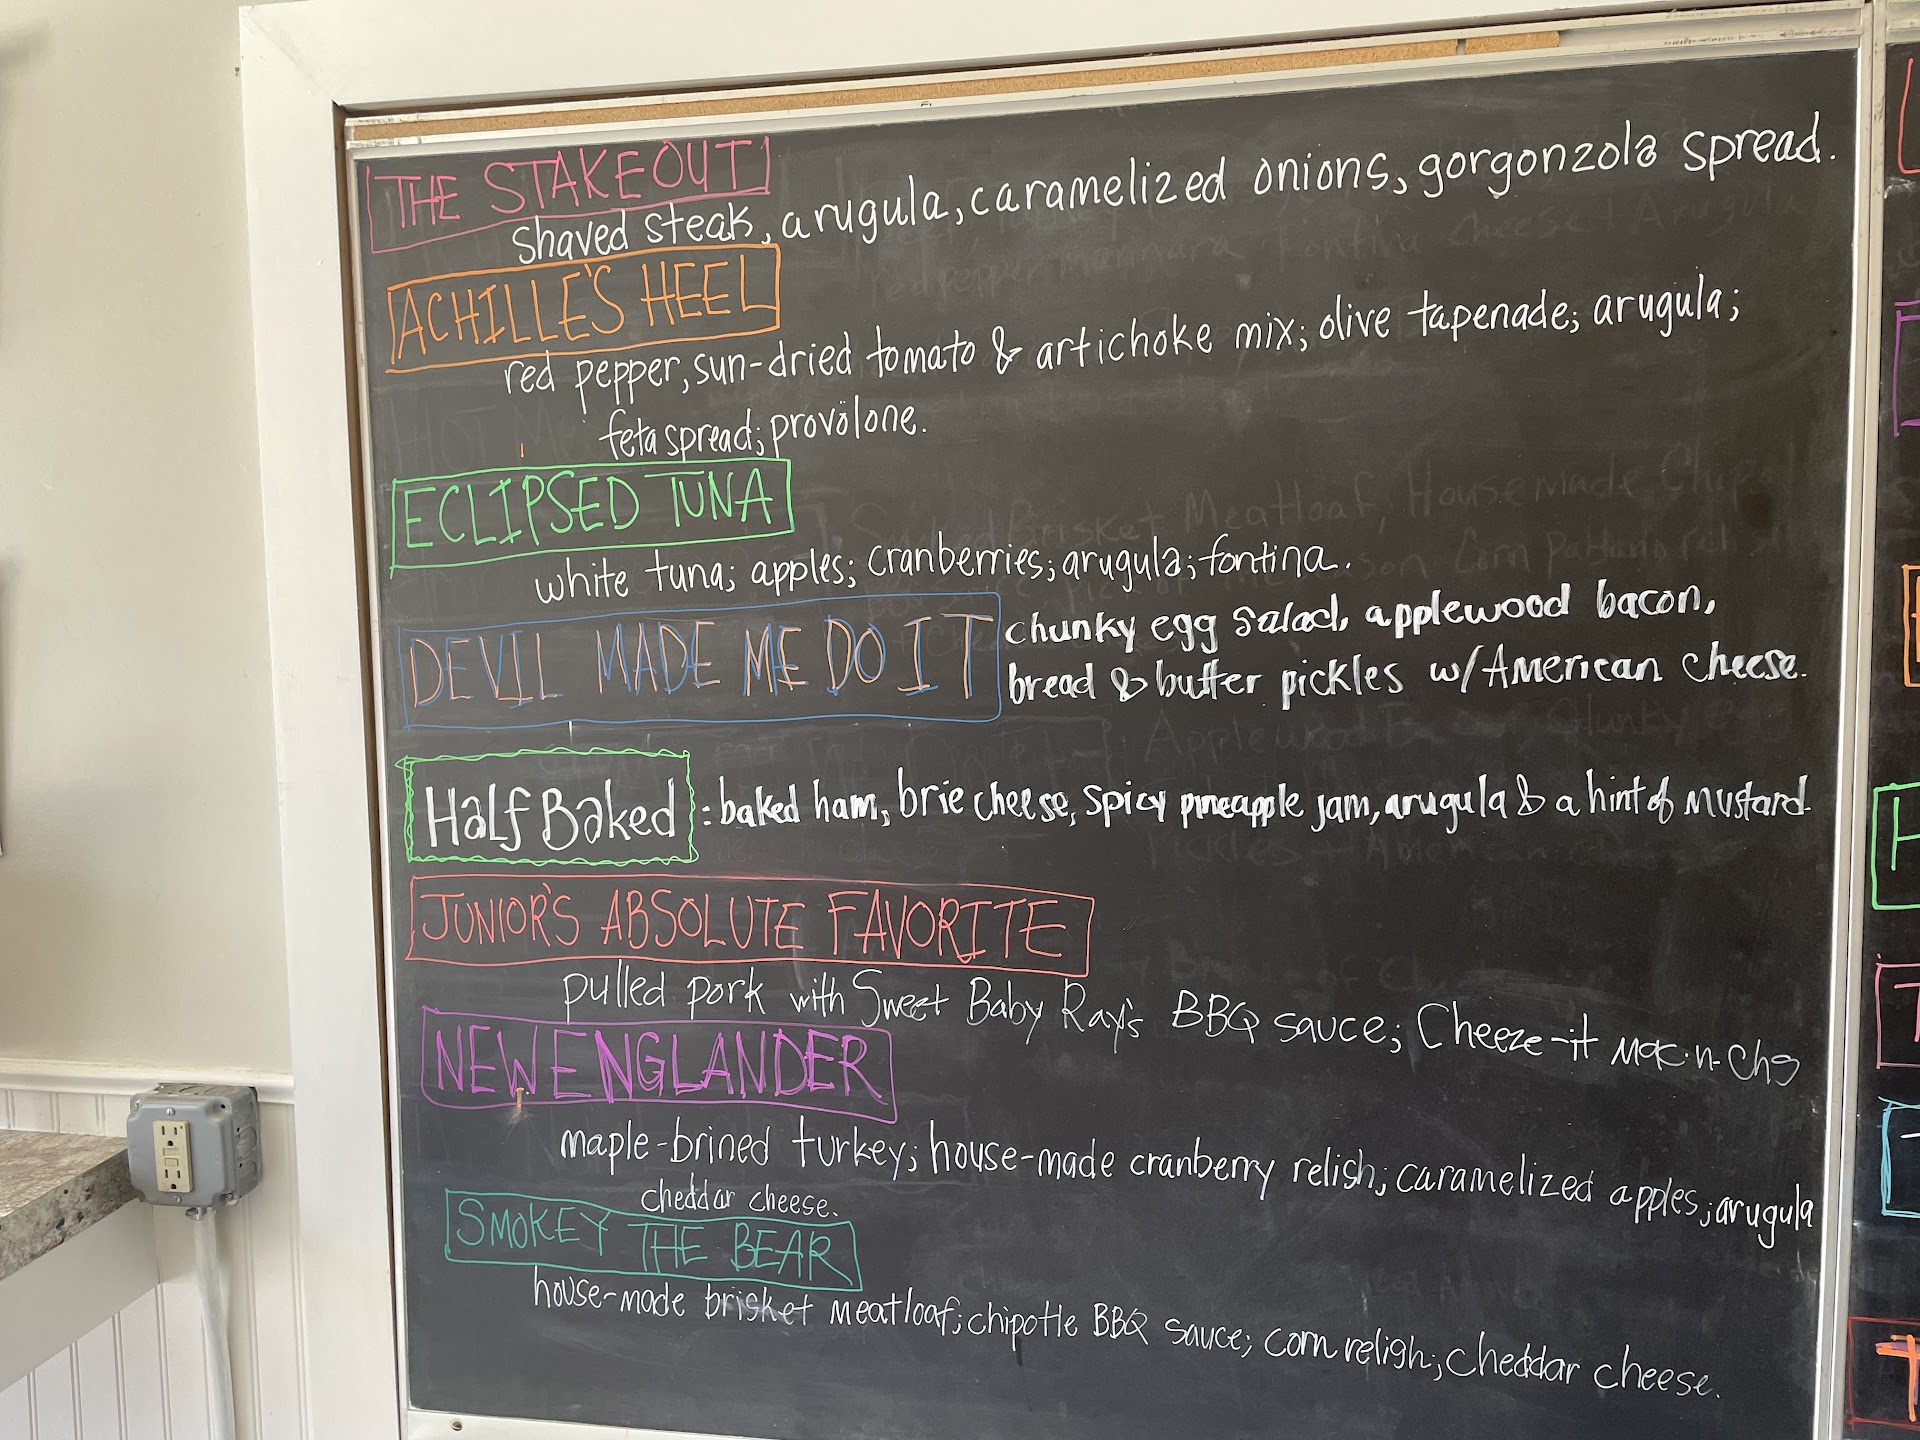 THE STAKEOUT
shaved steak, arugula, caramelized onions, gorgonzola spread.
ACHILLE'S HEEL
red pepper, sun-dried tomato & artichoke mix; olive tapenade; arugula;
feta spread; provolone.
ECLIPSED TUNA
white tuna; apples; cranberries; arugula; fontina.
DEVIL MADE ME DO IT
chunky egg salad, applewood bacon,
bread & butter pickles w/ American cheese.
Half Baked : baked ham, brie cheese, spicy pineapple jam, arugula & a hint of mustard
JUNIOR'S ABSOLUTE FAVORITE
pulled pork with Sweet Baby Ray's BBQ sauce; Cheeze-it mac-n-chs
NEW ENGLANDER
maple-brined turkey; house-made cranberry relish; caramelized apples; arugula
cheddar cheese.
SMOKEY THE BEAR
house-made brisket meatloaf; chipotle BBQ sauce; corn religh; cheddar cheese.